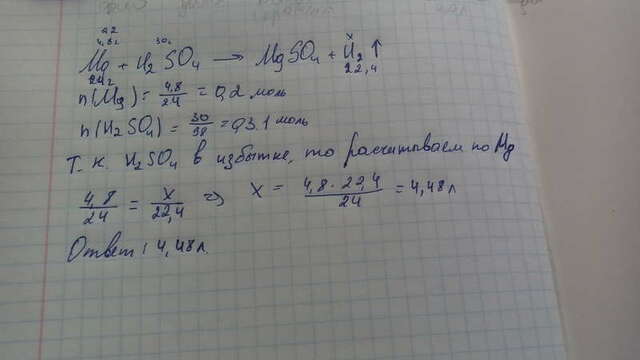 0,2
4,8г 30г X
Mg + H₂SO₄ → MgSO₄ + H₂↑
24г 22,4
n(Mg) = 4,8/24 = 0,2 моль
n(H₂SO₄) = 30/98 = 0,31 моль
Т. к. H₂SO₄ в избытке, то расчитываем по Mg
4,8/24 = X/22,4 => X = 4,8·22,4/24 = 4,48 л
Ответ: 4,48 л.